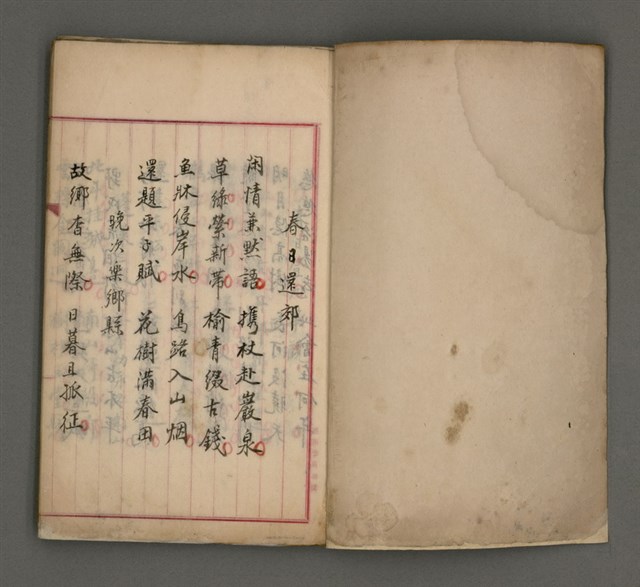 春日還郊
閑情兼黙語 携杖赴巖泉
草緑縈新帯 榆青綴古錢
魚牀侵岸水 鳥路入山烟
還題平子賦 花樹滿春田
晚次楽鄉縣
故鄉杳無際 日暮且孤征